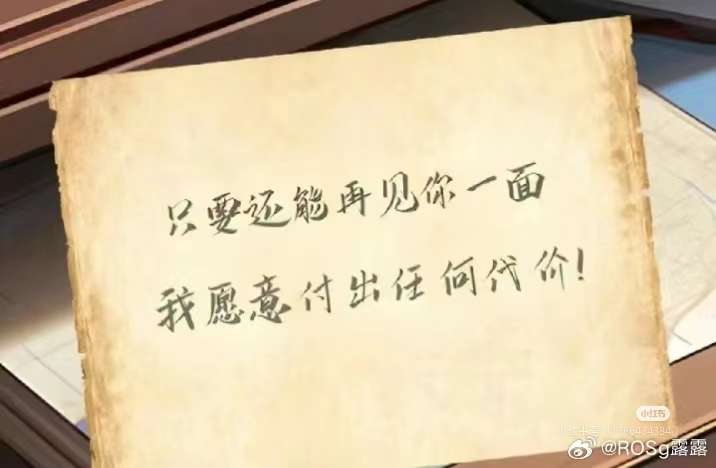 只要还能再见你一面
我愿意付出任何代价!
小红书
@ROSg露露